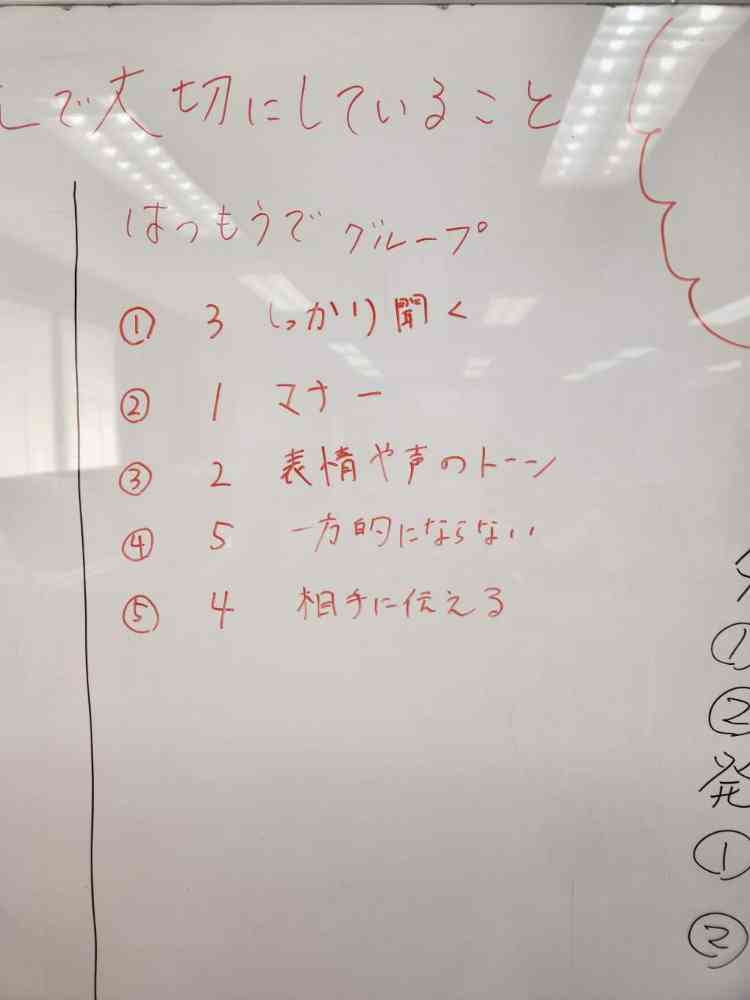 しで大切にしていること
はつもうでグループ
① 3 しっかり聞く
② 1 マナー
③ 2 表情や声のトーン
④ 5 一方的にならない
⑤ 4 相手に伝える
①
②
発
①
②